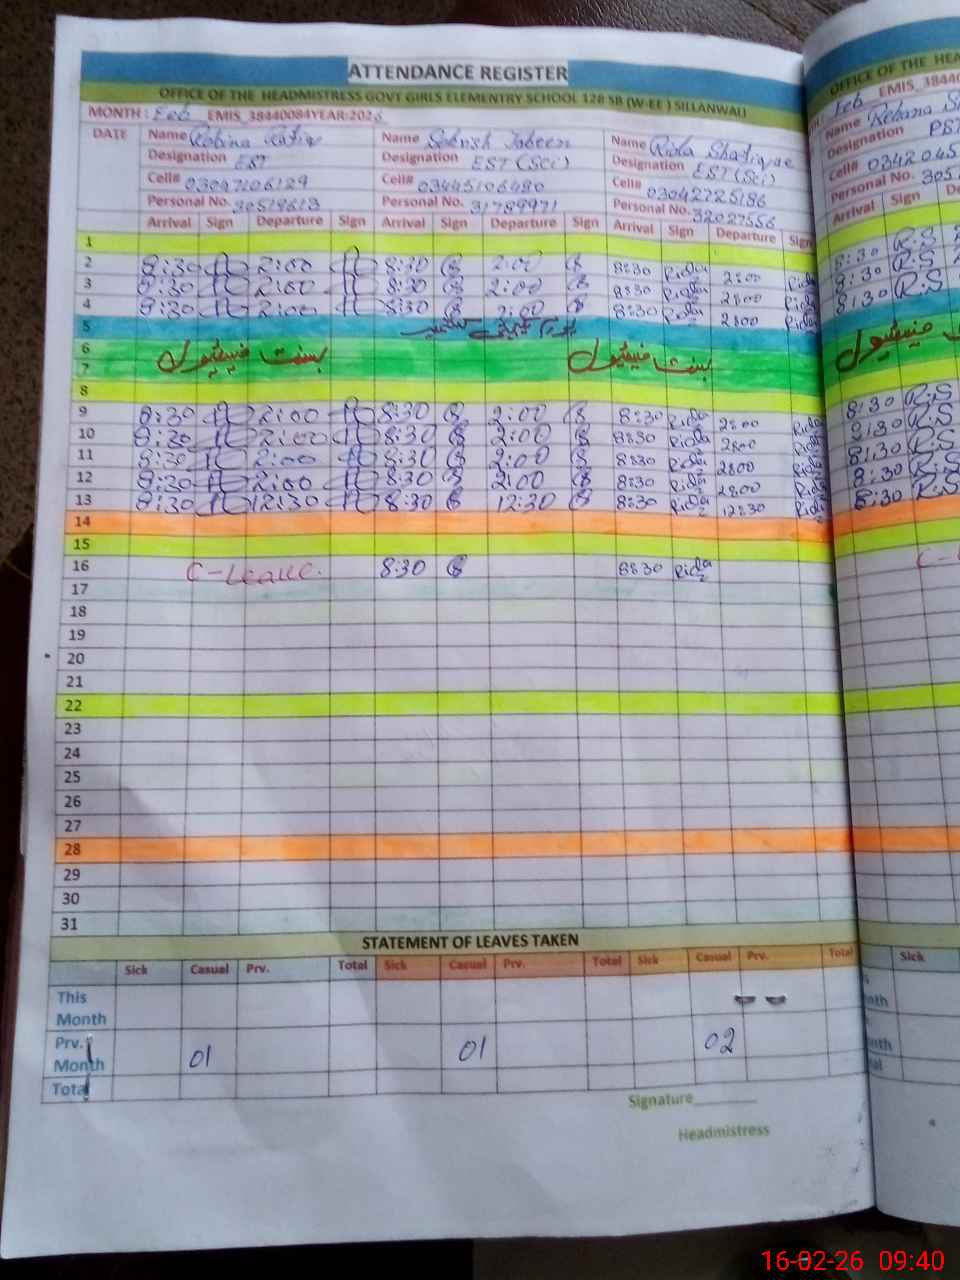 ATTENDANCE REGISTER
OFFICE OF THE HEADMISTRESS GOVT GIRLS ELEMENTRY SCHOOL 128 SB (W-EE) SILLANWALI
OFFICE OF THE HEA
MONTH: Feb EMIS_38440084YEAR:2026
Feb EMIS_3844
DATE Name Robina Name Sehrish Jabeen Name Rida Shafique
Name Rehana
Designation EST Designation EST (Sci) Designation EST (Sci)
Designation PST
Cell# 03047106129 Cell# 03445106480 Cell# 03042725186
Cell# 0342045
Personal No. 30518613 Personal No. 31789971 Personal No. 32027556
Personal No. 305
Arrival Sign Departure Sign Arrival Sign Departure Sign Arrival Sign Departure Sign
Arrival Sign
1
2 8:30 2:00 8:30 2:00 8:30 Rida 2:00 Rida 8:30 R.S
3 8:30 2:00 8:30 2:00 8:30 Rida 2:00 Rida 8:30 R.S
4 8:30 2:00 8:30 2:00 8:30 Rida 2:00 Rida 8:30 R.S
5
6 بسنت فیسٹیول بسنت فیسٹیول فیسٹیول
7
8
9 8:30 2:00 8:30 2:00 8:30 Rida 2:00 Rida 8:30 R.S
10 8:30 2:00 8:30 2:00 8:30 Rida 2:00 Rida 8:30 R.S
11 8:30 2:00 8:30 2:00 8:30 Rida 2:00 Rida 8:30 R.S
12 8:30 2:00 8:30 2:00 8:30 Rida 2:00 Rida 8:30 R.S
13 8:30 12:30 8:30 12:30 8:30 Rida 12:30 Rida 8:30 R.S
14
15
16 C-Leave. 8:30 8:30 Rida C-
17
18
19
20
21
22
23
24
25
26
27
28
29
30
31
STATEMENT OF LEAVES TAKEN
Sick Casual Prv. Total Sick Casual Prv. Total Sick Casual Prv. Total Sick
This Month
Prv. Month 01 01 02
Total
Signature
Headmistress
16-02-26 09:40